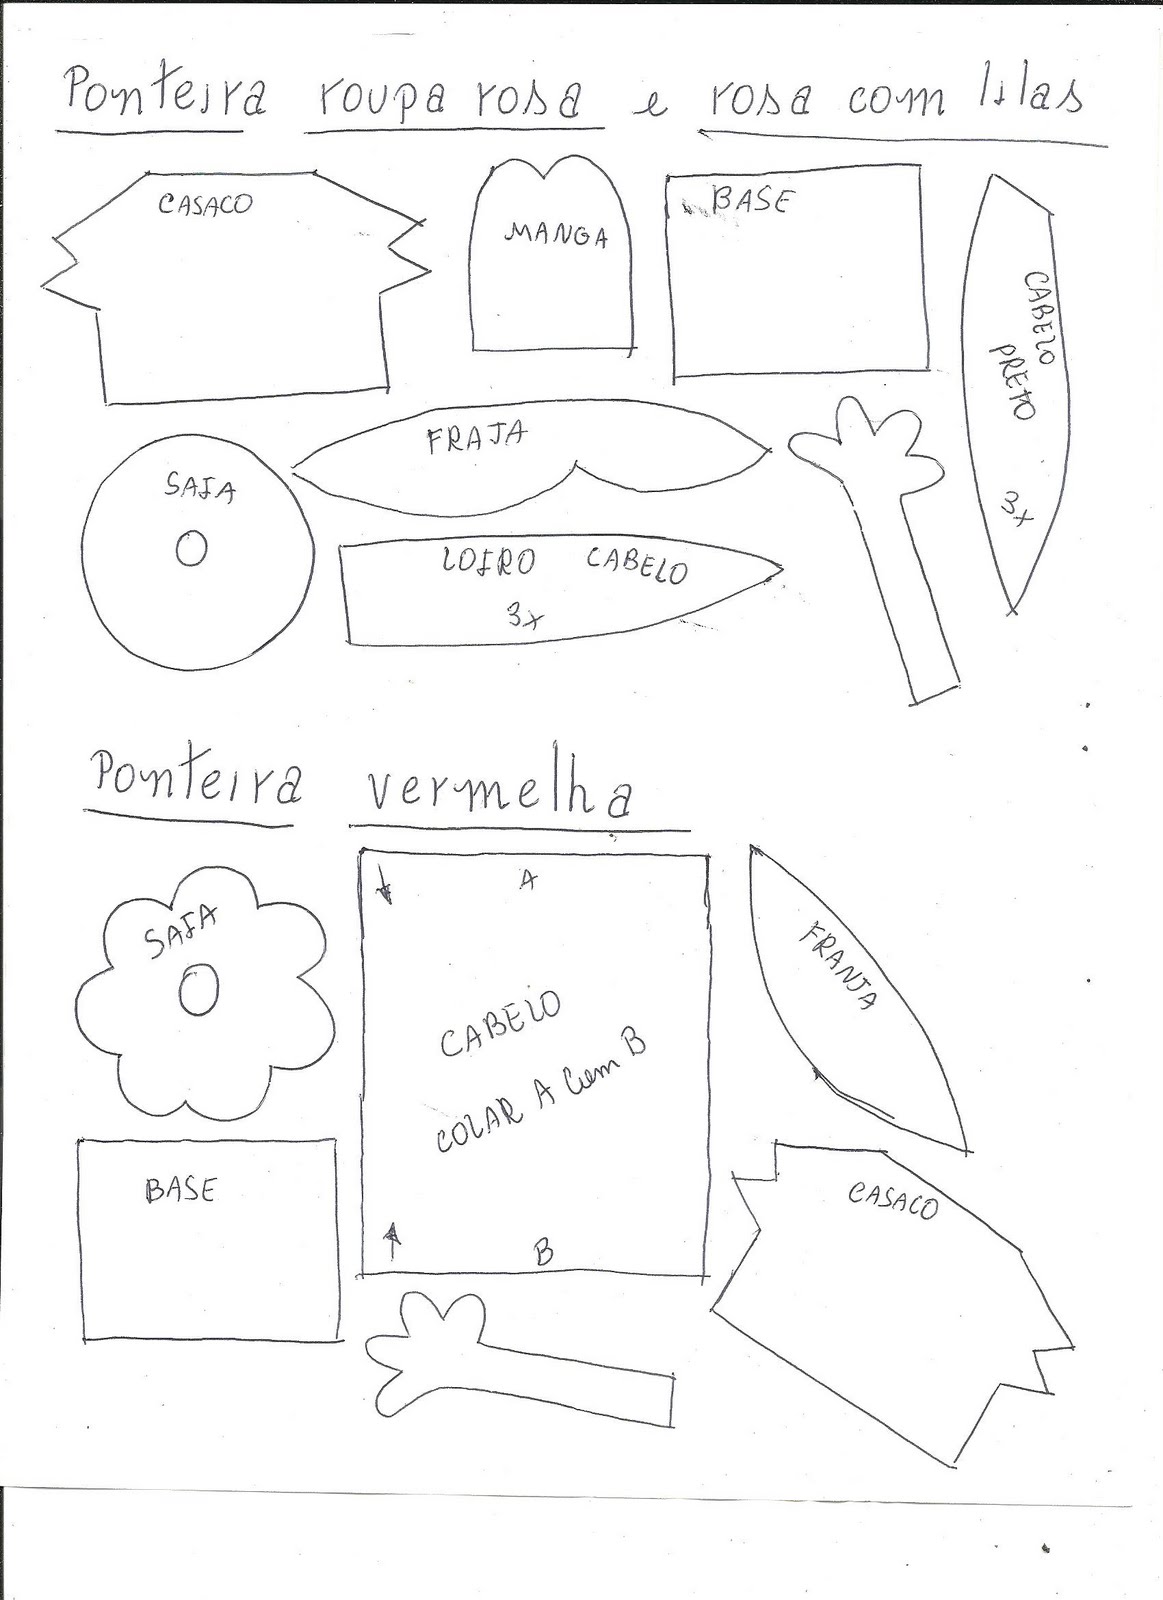 Ponteira roupa rosa e rosa com lilas
CASACO
MANGA
BASE
CABELO
PRETO
3x
FRAJA
SAIA
LOIRO CABELO
3x
Ponteira vermelha
SAIA
A
CABELO
COLAR A com B
B
FRANJA
BASE
CASACO